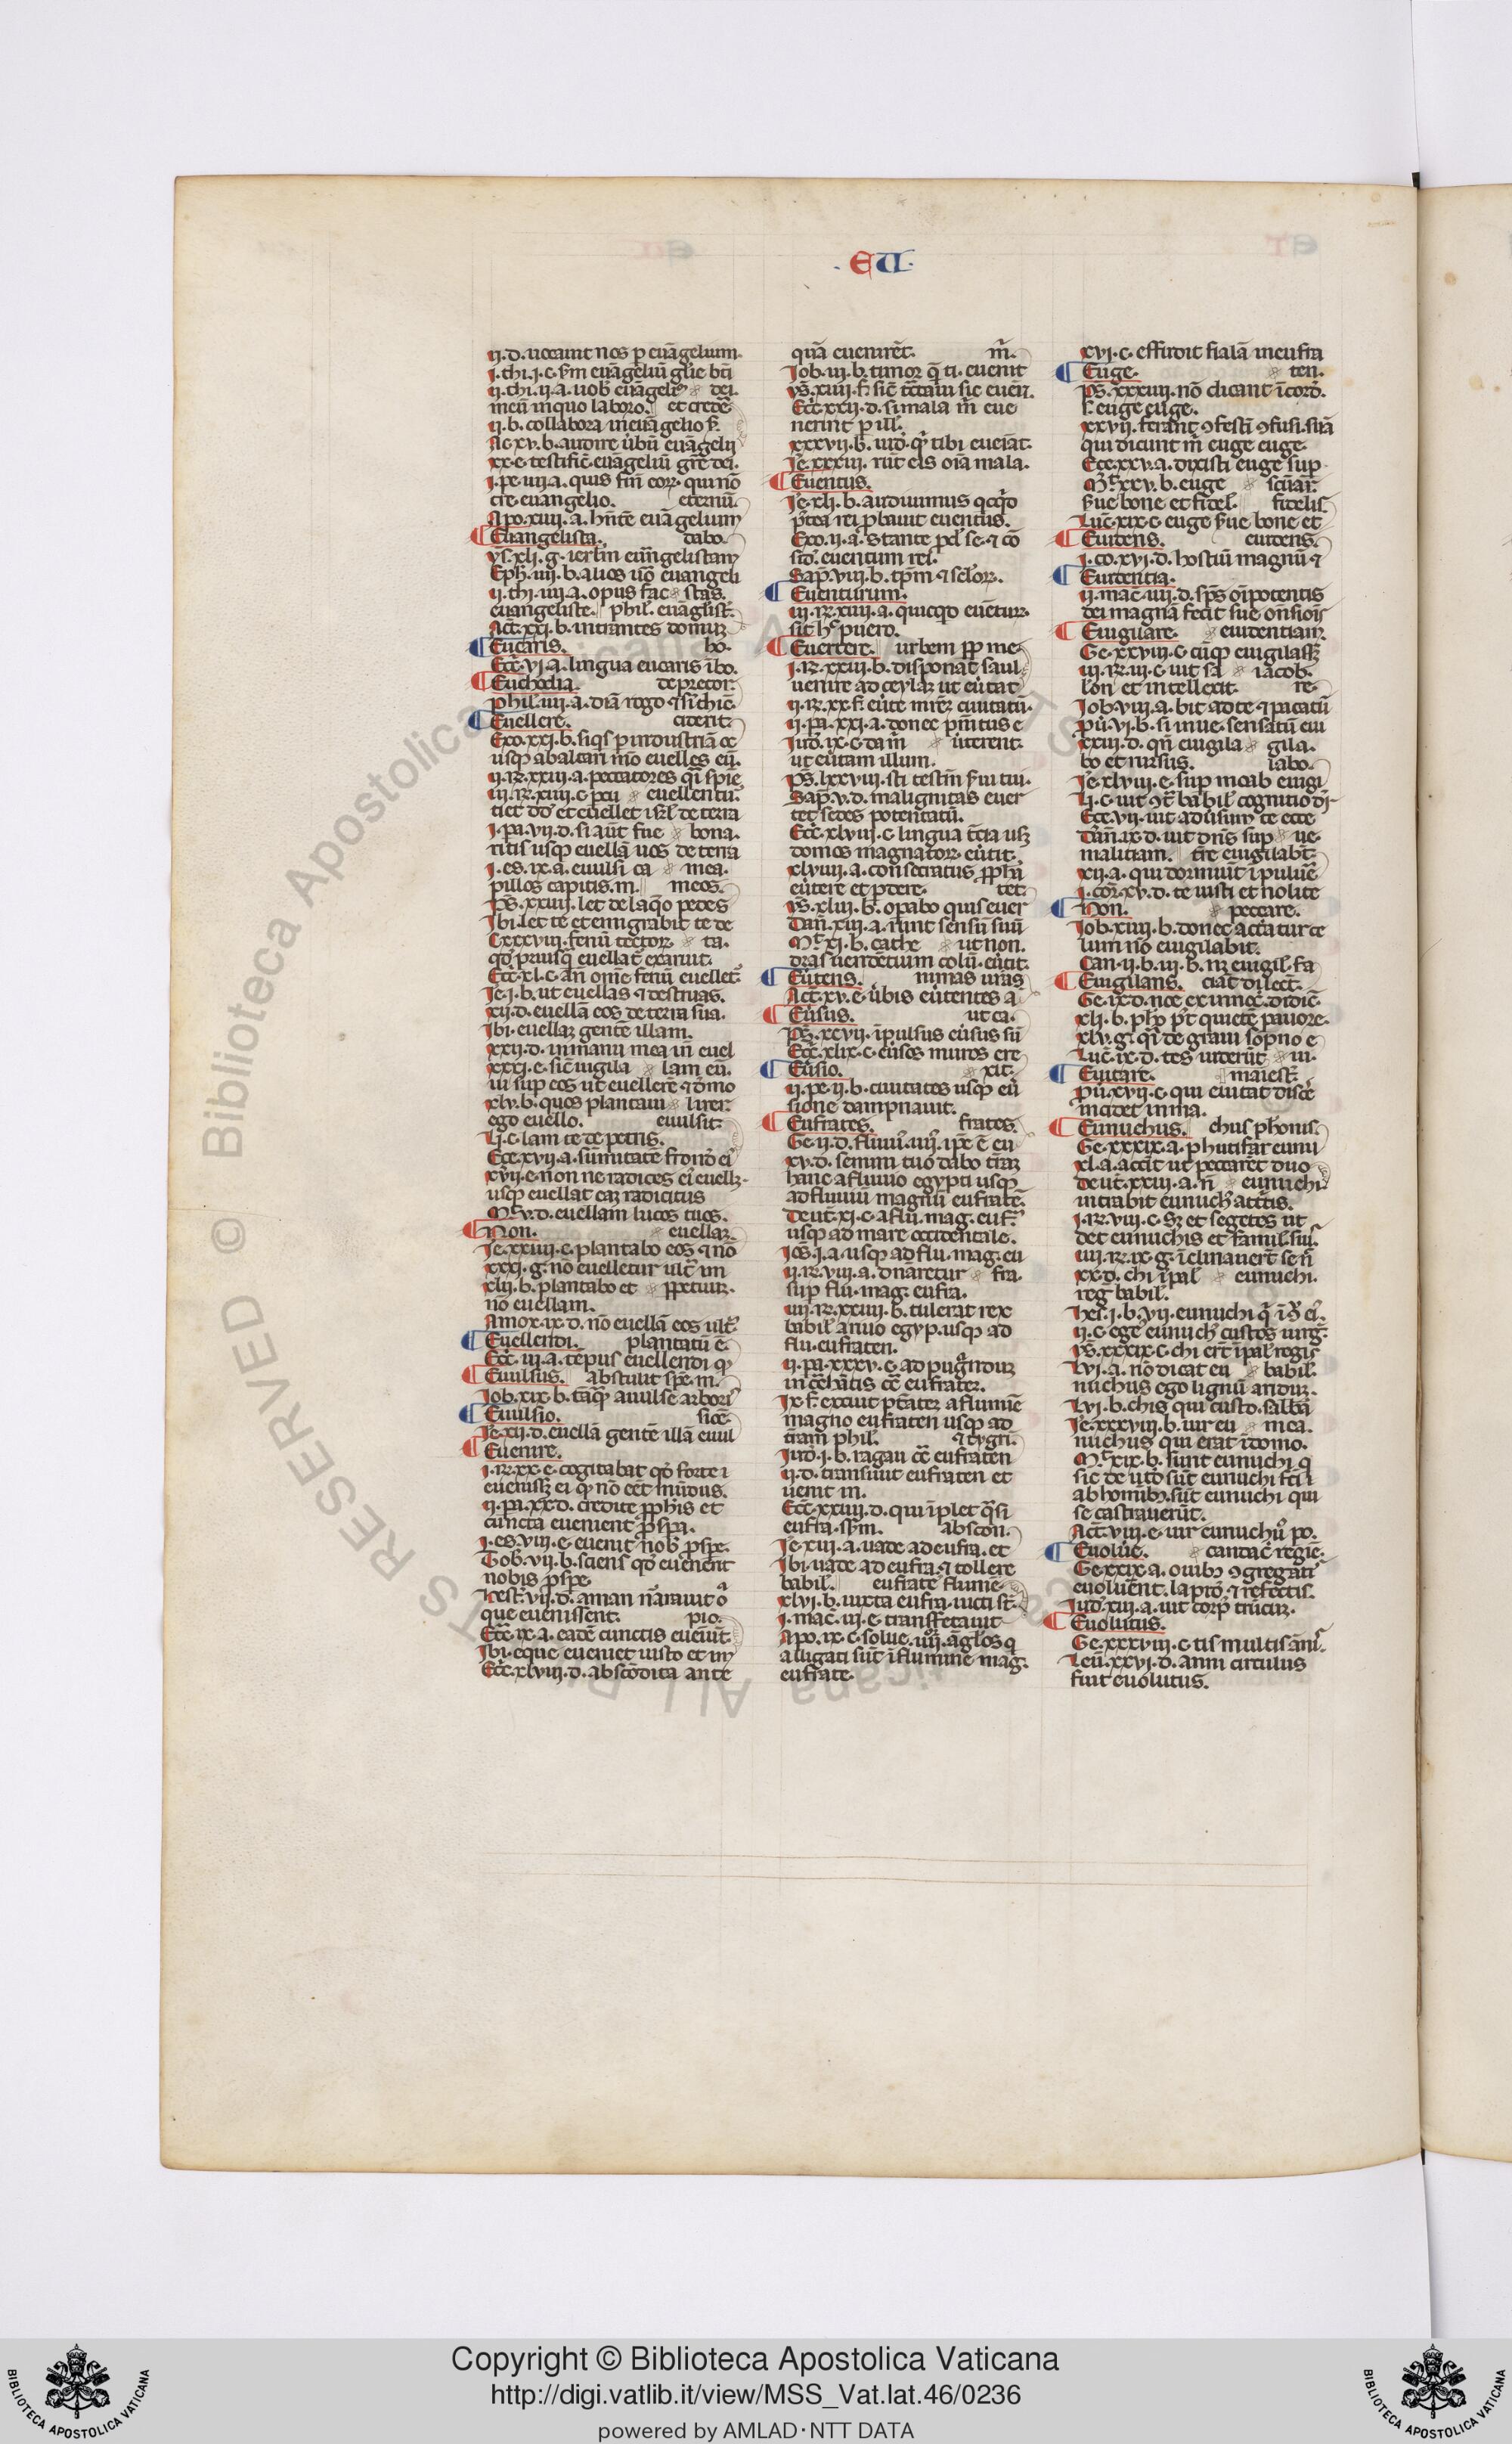 EU
ii.d. uocauit nos p euāgelium
i.thi.i.c. sm euāgeliū glie bti
ii.thi.ii.a. uob euāgeliū dei.
meū in quo laboro. et crede
ii.b. collabora in euāgelio s.
Ac.xv.b. audire ūbū euāgelii
xx.e. testific euāgeliū gre dei.
i.pe.iiii.a. quis fin eorz qui nō
cre euangelio. eternū.
Apo.xiiii.a. hnte euāgelium
Euangelista. dabo.
ys.xli.g. ierlm euāngelistam
Eph.iiii.b. alios uō euangeli
ii.thi.iiii.a. opus fac stas.
euangeliste. phil. euāglist.
Act.xxi.b. intrantes domuz
Eucaris. bo.
Ecc.vi.a. lingua eucaris ibo.
Euchodia. deprecor.
phil.iiii.a. diā rogo sichie
Euellere. ciderit.
Exo.xxi.b. siqs p industriā oc
usqp ab altari mō euelles eū.
ii.rz.xxiii.a. peccatores qi spie
iii.rz.xiiii.c. pcu euellentū.
tiet do et euellet isrl de terra
i.pa.vii.d. si aut fue bona.
ritis usqp euellā uos de terra
i.es.ix.a. euulsi ca mea.
pillos capitis.m. meos.
ps.xxiiii.let de laqo pedes
Ibi.let te et emigrabit te de
Cxxxviii.fenū tectorz ta.
qd priusq euellat exaruit.
Ecc.xl.c. an ome fenū euellet
Ie.i.b. ut euellas destruas.
xii.d. euellā eos de terra sua.
Ibi. euellaz gente illam.
xxii.d. in manu mea in euel
xxxi.e. sic uigila lam eū.
ui sup eos ut euellere domo
xlv.b. quos plantaui lirer.
ego euello. euulsit.
li.c. lam te de petris.
Ece.xvii.a. sumitate frond ei
xvii.e. non ne radices ei euellz.
usqp euellat eaz radicitus
Mc.v.d. euellam lucos tuos.
Non. euellaz.
Ie.xxiiii.c. plantabo eos nō
xxxi.g. nō euelletur ult in
xlii.b. plantabo et ppetuuz.
nō euellam.
Amox.ix.d. nō euellā eos ult
Euellendi. plantatū e.
Ecc.iii.a. tepus euellendi q
Euulsus. abstulit spe.m.
Iob.xix.b. taqp auulse arbori
Euulsio. sice
Ie.xii.d. euellā gente illā euul
Euenire.
i.rz.xx.e. cogitabat qd forte i
euenissz ei q nō eet mūdus.
ii.pa.xx.d. credite pphis et
cuncta euenient pspa.
i.es.viii.e. euenit nob pspe.
Tob.vii.b. sciens qd euenent
nobis pspe.
Hest.vii.d. aman narrauit o
que euenissent. pio.
Ecce.ix.a. eade cunctis eueniūt.
Ibi. eque eueniet iusto et im
Ecc.xlviii.d. abscōdita ante
quā euenirēt. m.
Iob.iii.b. timor q ti. euenit
ys.xiiii.f. sic cctaui sic eueū.
Ecc.xxii.d. si mala m eue
nerint p ill.
xxxvii.b. iud. q tibi eueiat.
Ie.xxxiii. rūt eis oīa mala.
Euentus.
Ie.xli.b. audiuimus qcqd
ptea rei pbauit euentus.
Exo.ii.a. stante pcl se co
sid. euentum rei.
Sap.viii.b. tpm sclorz.
Euenturum.
iii.rz.xiiii.a. quicqd euetur
sit hc puero.
Euertere. urbem pp me
i.rz.xxiii.b. disponat saul
uenire ad ceylaz ut euertat
ii.rz.xx.f. euerte mrez ciuitatū.
ii.pa.xxi.a. donec pmitus e
Iud.ix.c. da m uterent.
ut euertam illum.
ps.lxxviii. sti testim sui tui.
Sap.v.d. malignitas euer
tet sedes potentatū.
Ecc.xlviii.c. lingua tcia usz
domos magnatorz eutit.
xlviiii.a. consecratus ppha
eutere et pdere. tet.
ys.xliii.b. opabo quis euer
Dan.xiii.a. rūnt sensū suū
Mc.xi.b. cathe ut non.
dras uendetium colū. eutit.
Eutens. nimas uras
Act.xv.e. ubis eutentes a
Eusus. ut ca.
ps.xcvii. ipulsus eusus sū
Ecc.xlix.c. eusos muros ere
Eusio. xit.
ii.pe.ii.b. ciuitates usqp eu
sione dampnauit.
Eufrates. frates.
Ge.ii.d. fluui iiii ipe e eu
xv.d. semini tuo dabo traz
hanc a fluuio egypti usqp
ad fluuiū magnū eufrate.
Deut.xi.c. a flu. mag. euf.
usqp ad mare occidentale.
Ios.i.a. usqp ad flu. mag. eu
ii.rz.viii.a. dnaretur fra.
sup flu. mag. eufra.
iiii.rz.xxiiii.b. tulerat rex
babil a riuo egyp. usqp ad
flu. eufraten.
ii.pa.xxxv.e. ad pugnduz
ix.f. exciuit ptatez a flumie
magno eufraten usqp ad
tram phil. tygri.
Iud.i.b. ragau cc eufraten
ii.d. transiuit eufraten et
uenit in.
Ecc.xxiiii.d. qui iplet qsi
eufra.ssm. abscon.
Ie.xiii.a. uade ad eufra. et
Ibi. uade ad eufra. tollere
babil. eufrate flumē.
xlvi.b. iuxta eufra. uicti st.
i.mac.iii.e. transfretauit
Apo.ix.c. solue. iiii. āglos q
alligati sūt i flumine mag.
eufrate.
xvi.c. effudit fialā in eufra
Euge. ten.
Ps.xxxiiii. nō dicant i cord.
s. euge euge.
qui dicunt m euge euge.
Ece.xxv.a. dixisti euge sup
Mt.xxv.b. euge scuar.
sue bone et fidel. fidelis
Luc.xix.c. euge sue bone et
Euidens. euidens.
i.co.xvi.d. hostiū magnū
Euidentia.
ii.mac.iiii.d. sps oipotentis
dei magnā fecit sue onsiois
Euigilare. euidentiam.
Ge.xxviii.c. cuqp euigilassz
iii.rz.iii.c. uit sa iacob.
lon et intellexit. re.
Iob.viii.a. bit ad te pacatū
pu.vi.b. si inue. sensatū eui
xxiii.d. qn euigila gila.
bo et rursus. labo.
Ie.xlviii.e. sup moab euigi
Ece.vii. uit aduisum te ecce
Dan.ix.d. uit dns sup ue.
malitiam. tre euigilabt.
xii.a. qui dormiūt i puluē
i.cor.xv.d. te iusti et nolite
Non. peccare.
Iob.xiiii.b. donec attatur ce
lum nō euigilabit.
Can.ii.b.iii.b. nz euigil. fa
Euigilans. ciat dilect.
Ge.ix.d. noe ex uino. didic
xli.b. php pt quiete pauore.
xlv.g. qi de graui sopno e
Luc.ix.d. tes uiderūt ui.
Euitare. maiest.
pu.xvii.c. qui euitat disce
incidet in ma.
Eunuchus. chus phonis.
Ge.xxxix.a. phutifar eunu
xl.a. accit ut peccaret duo
Deut.xxiii.a. n eunuchi
intrabit eunuchz attritis.
i.rz.viii.c. Sz et segetes ut
det eunuchis et famul. sui
iiii.rz.ix.g. iclinauert se n
xx.d. chi ipal eunuchi.
reg babil.
Hes.i.b. vii. eunuchi q i s ei.
ii.c. ege eunuchz custos uirg.
ys.xxxix.c. chi ert i pal regis
lvi.a. nō dicat eu babil.
nuchus ego lignū ariduz.
lvi.b. chis qui custo. sabba
Ie.xxxviii.b. uir eu mea.
nuchus qui erat i domo.
Mt.xix.b. sunt eunuchi q
sic de ut sūt eunuchi fcti
ab homib. sūt eunuchi qui
se castrauerūt.
Act.viii.e. uir eunuchus po.
Euolue. candac regie.
Ge.xxix.a. ouib gregati
euoluent. lapid refectis.
Iud.xiii.a. uit corp trūcuz.
Euolutus.
Ge.xxxviii.c. tis multis anis
Leu.xxvi.d. anni circulus
fuit euolutus.
Copyright © Biblioteca Apostolica Vaticana
http://digi.vatlib.it/view/MSS_Vat.lat.46/0236
powered by AMLAD·NTT DATA